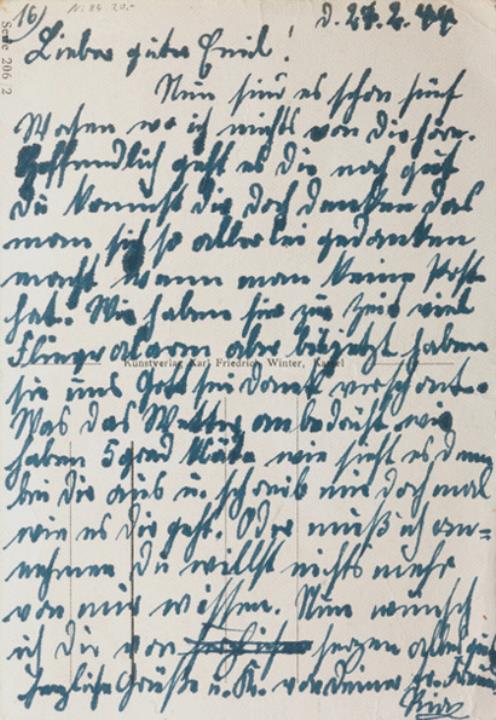 16) N: 84 20.-
D. 27.2.44
Seite 206/2
Lieber guter Emil!
Nun sind es schon fünf
Wochen wo ich nichts von Dir höre.
Hoffendlich geht es Dir noch gut
Du kannst Dir doch denken das
man sich so allerlei gedanken
macht wenn man keine Post
hat. Wir haben hir zur Zeit viel
Flieger alarm aber bisjetzt haben
Kunstverlag Karl Friedrich Winter, Kassel
sie uns Gott sei dank verschont.
Was das Wetter anbedrift wir
haben 5 grad Kälte wie sieht es denn
bei Dir aus u. schreib mir doch mal
wie es Dir geht. Oder muß ich an=
nehmen Du willst nichts mehr
von mir wissen. Nun wünsch
ich Dir von herzen alles gute
herzliche Grüße u. K. von Deiner